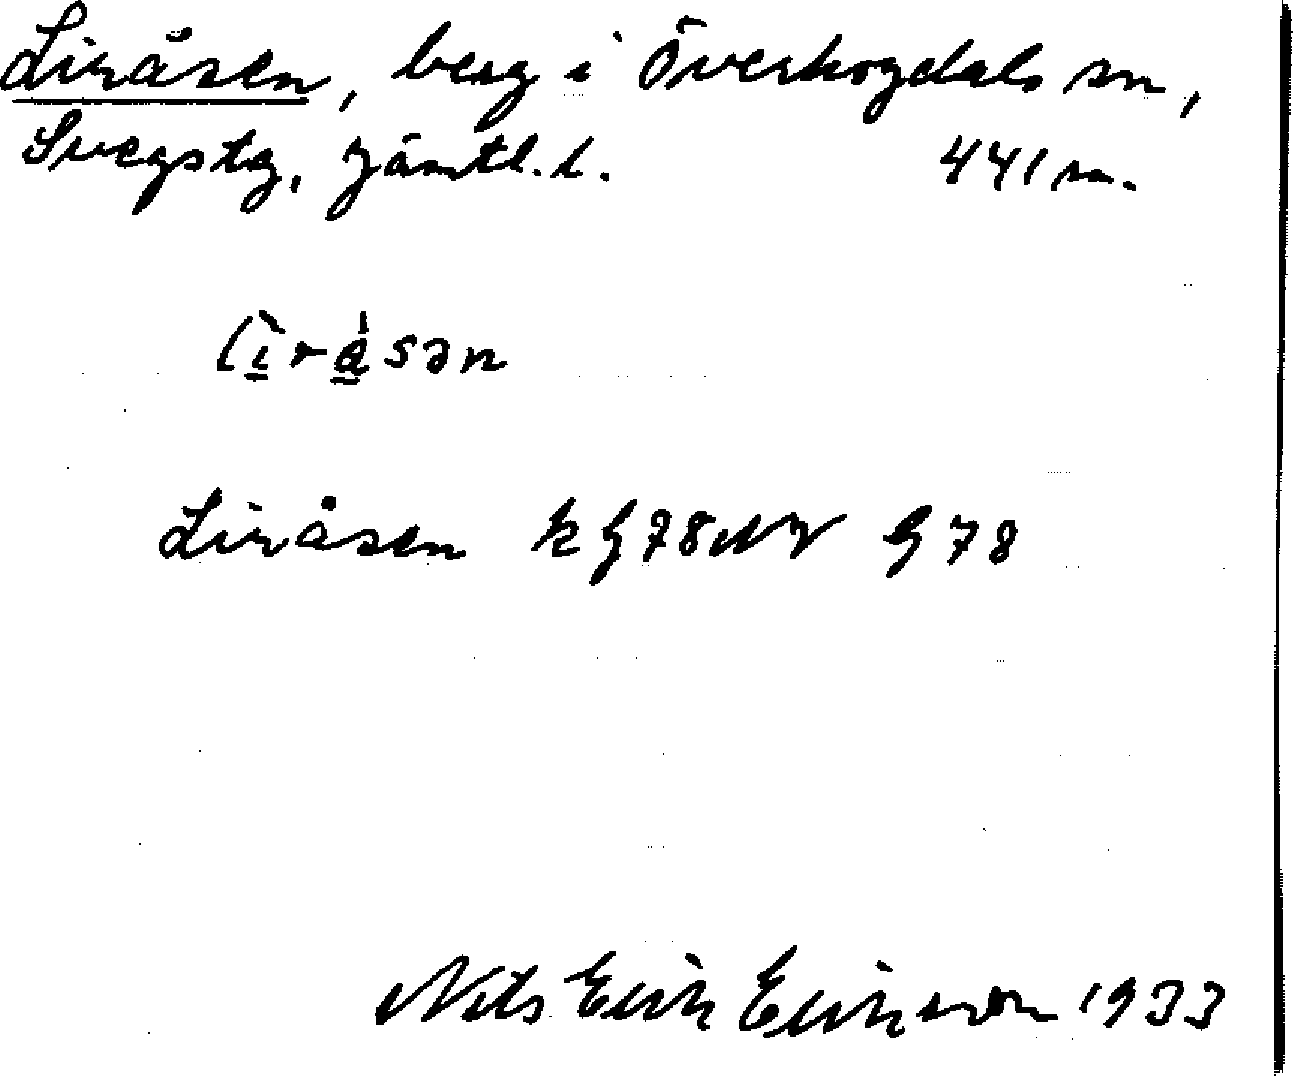 Liråsen, berg i Överhogdals sn,
Svegs tg, Jämtl. l. 441 m.
lìrásən
Liråsen k G78NV G 78
Nils Erik Eriksson 1933